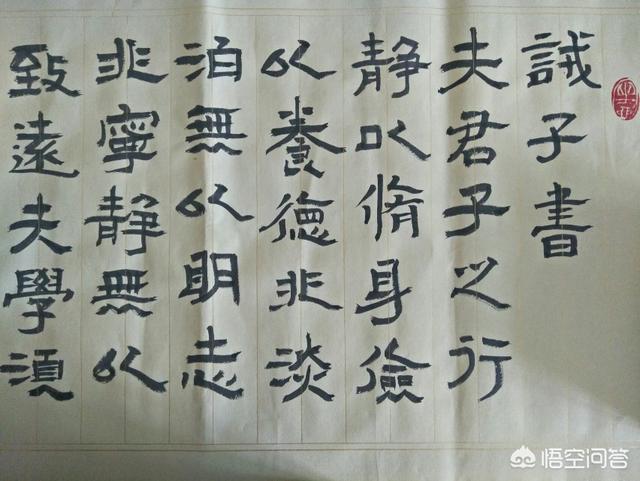 誡子書
夫君子之行
静以脩身儉
以養德非淡
泊無以明志
非寧静無以
致遠夫學須
悟空问答